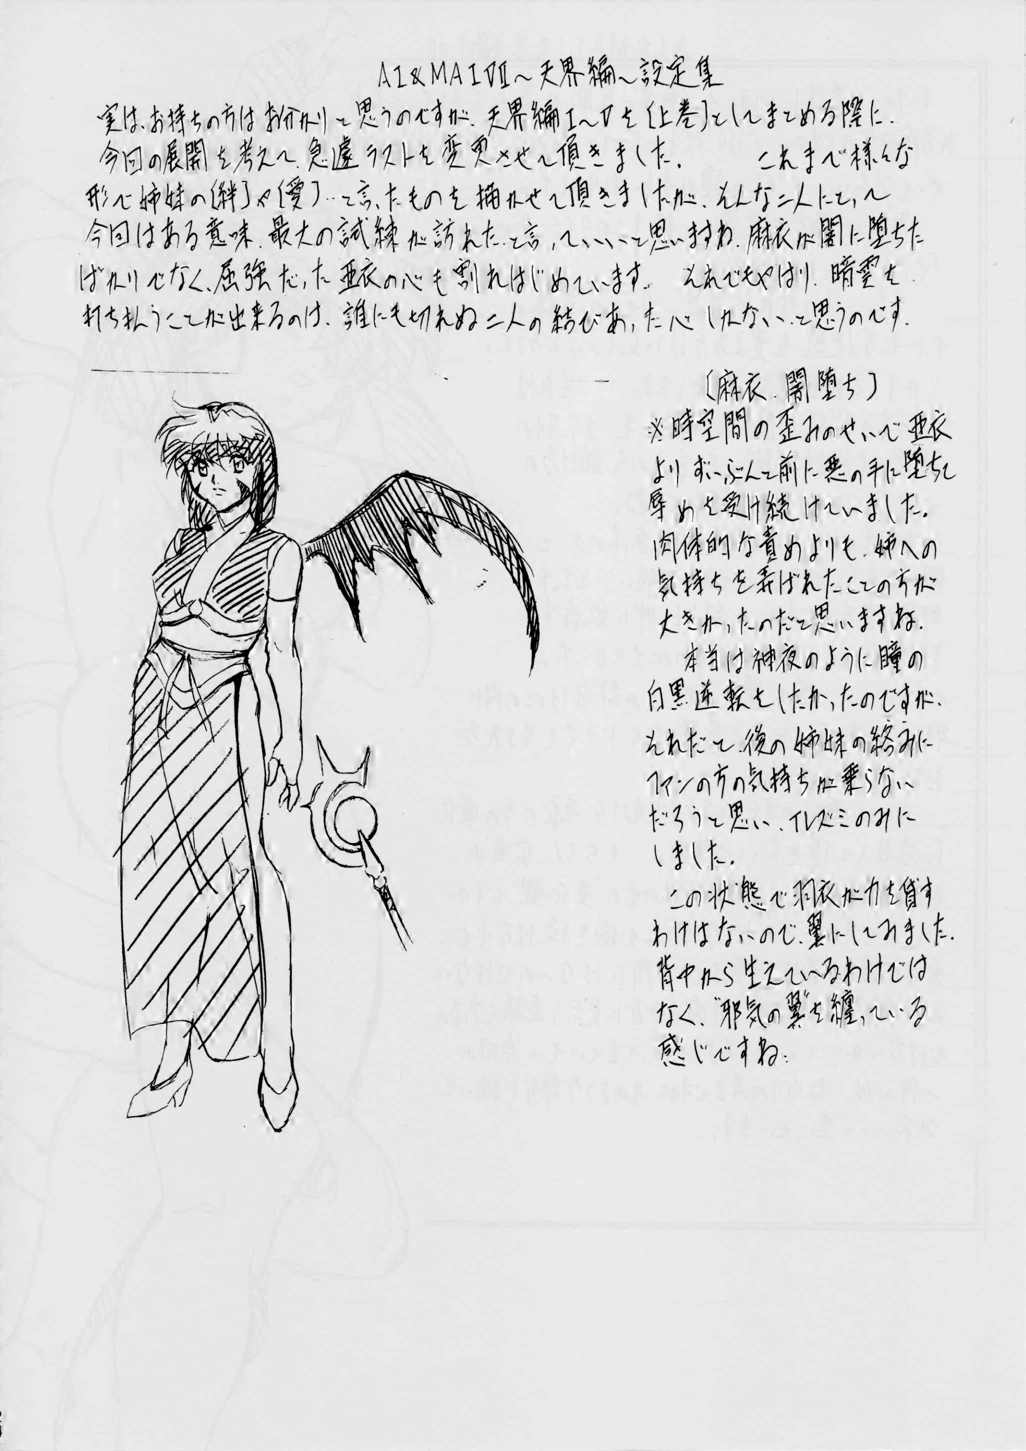 AI&MAI VII～天界編～設定集
実は、お持ちの方はお分かりと思うのですが、天界編I～Vを〔上巻〕としてまとめる際に、
今回の展開を考えて、急遽ラストを変更させて頂きました。　これまで様々な
形で姉妹の〔絆〕や〔愛〕‥と言ったものを描かせて頂きましたが、そんな二人にとって
今回はある意味、最大の試練が訪れた、と言っていいと思いますね、麻衣が闇に堕ちた
ばかりでなく、屈強だった亜衣の心も割れはじめています。　それでもやはり、暗雲を
打ち払うことが出来るのは、誰にも切れぬ二人の結びあった心しかない、と思うのです.
〔麻衣、闇堕ち〕
※時空間の歪みのせいで亜衣
よりずーぶんと前に悪の手に堕ちて
辱めを受け続けていました。
肉体的な責めよりも、姉への
気持ちを弄ばれたことの方が
大きかったのだと思いますね.
本当は神夜のように瞳の
白黒逆転をしたかったのですが、
それだと、後の姉妹の絡みに
ファンの方の気持ちが乗らない
だろうと思い、イレズミのみに
しました。
この状態で羽衣が力を貸す
わけはないので、翼にしてみました.
背中から生えているわけでは
なく、"邪気の翼"を纏っている
感じですね.